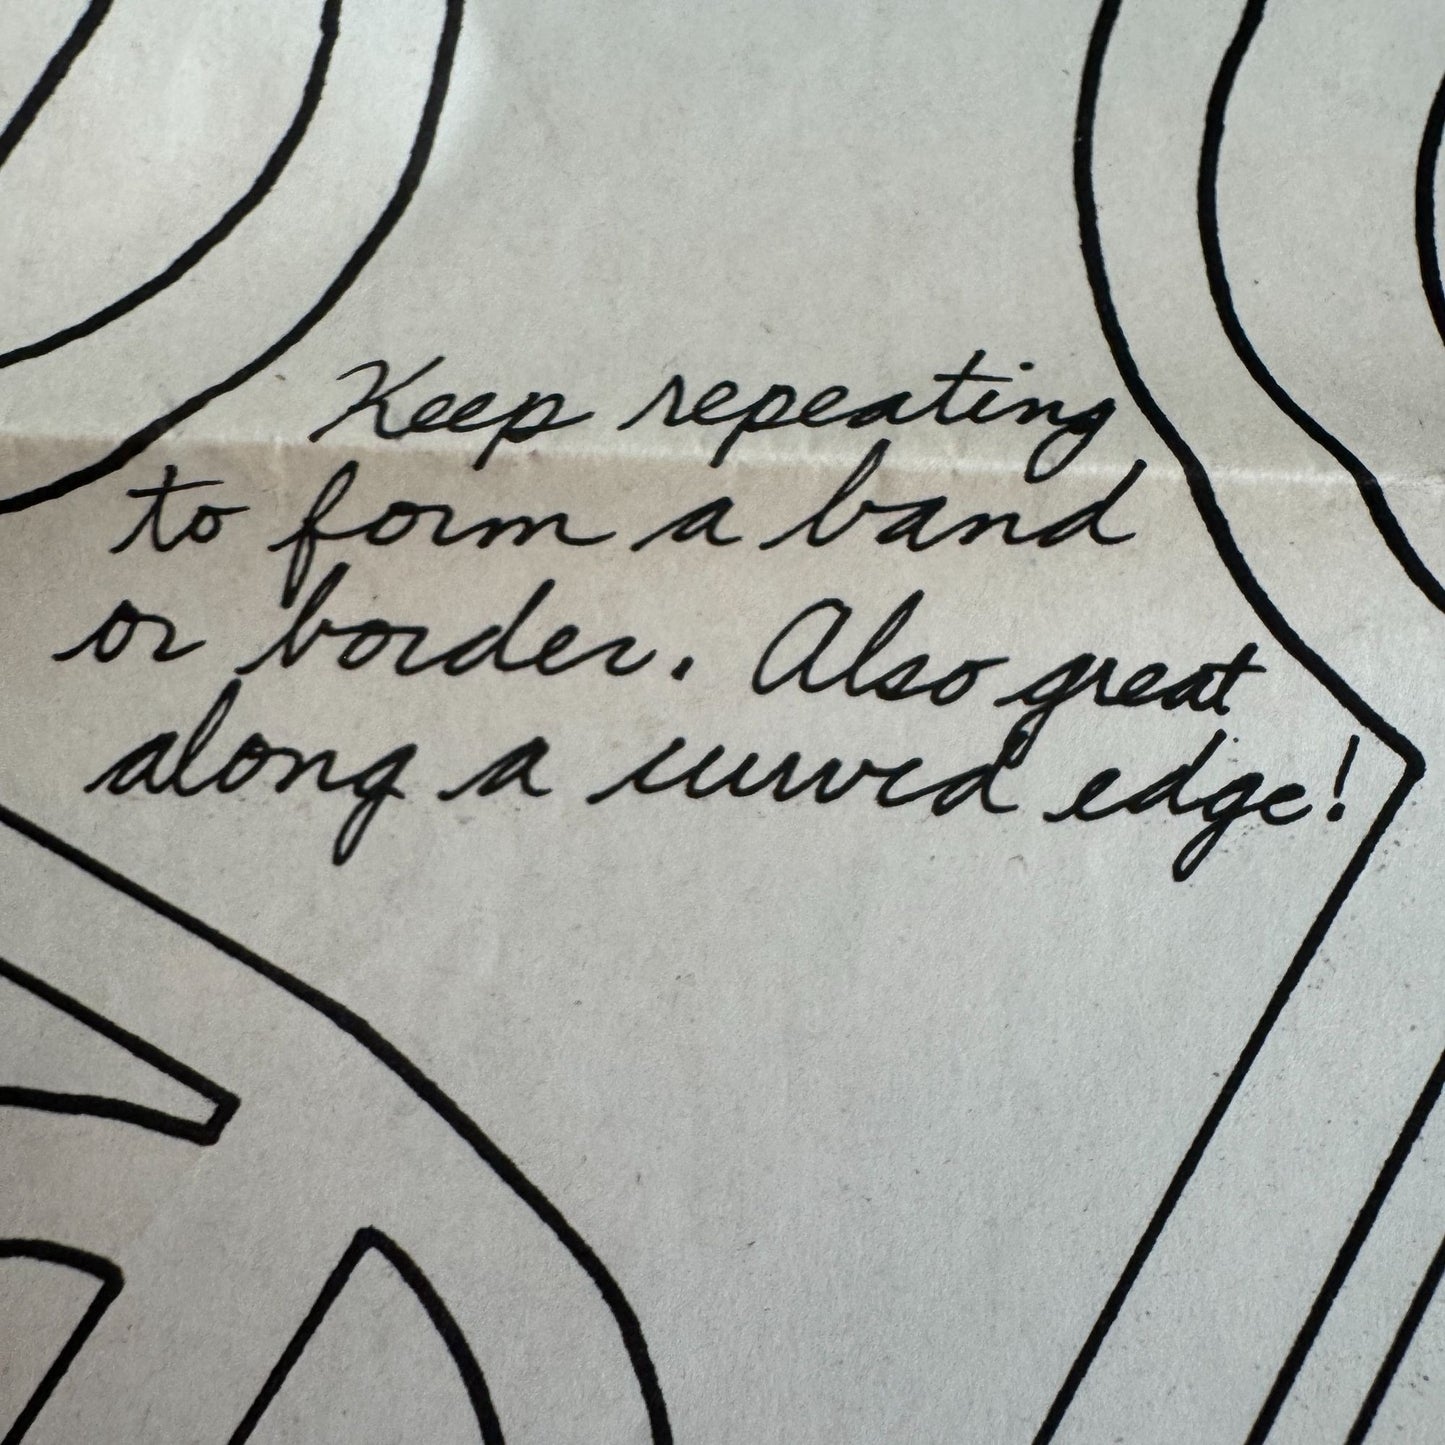 Keep repeating
to form a band
or border. Also great
along a curved edge!